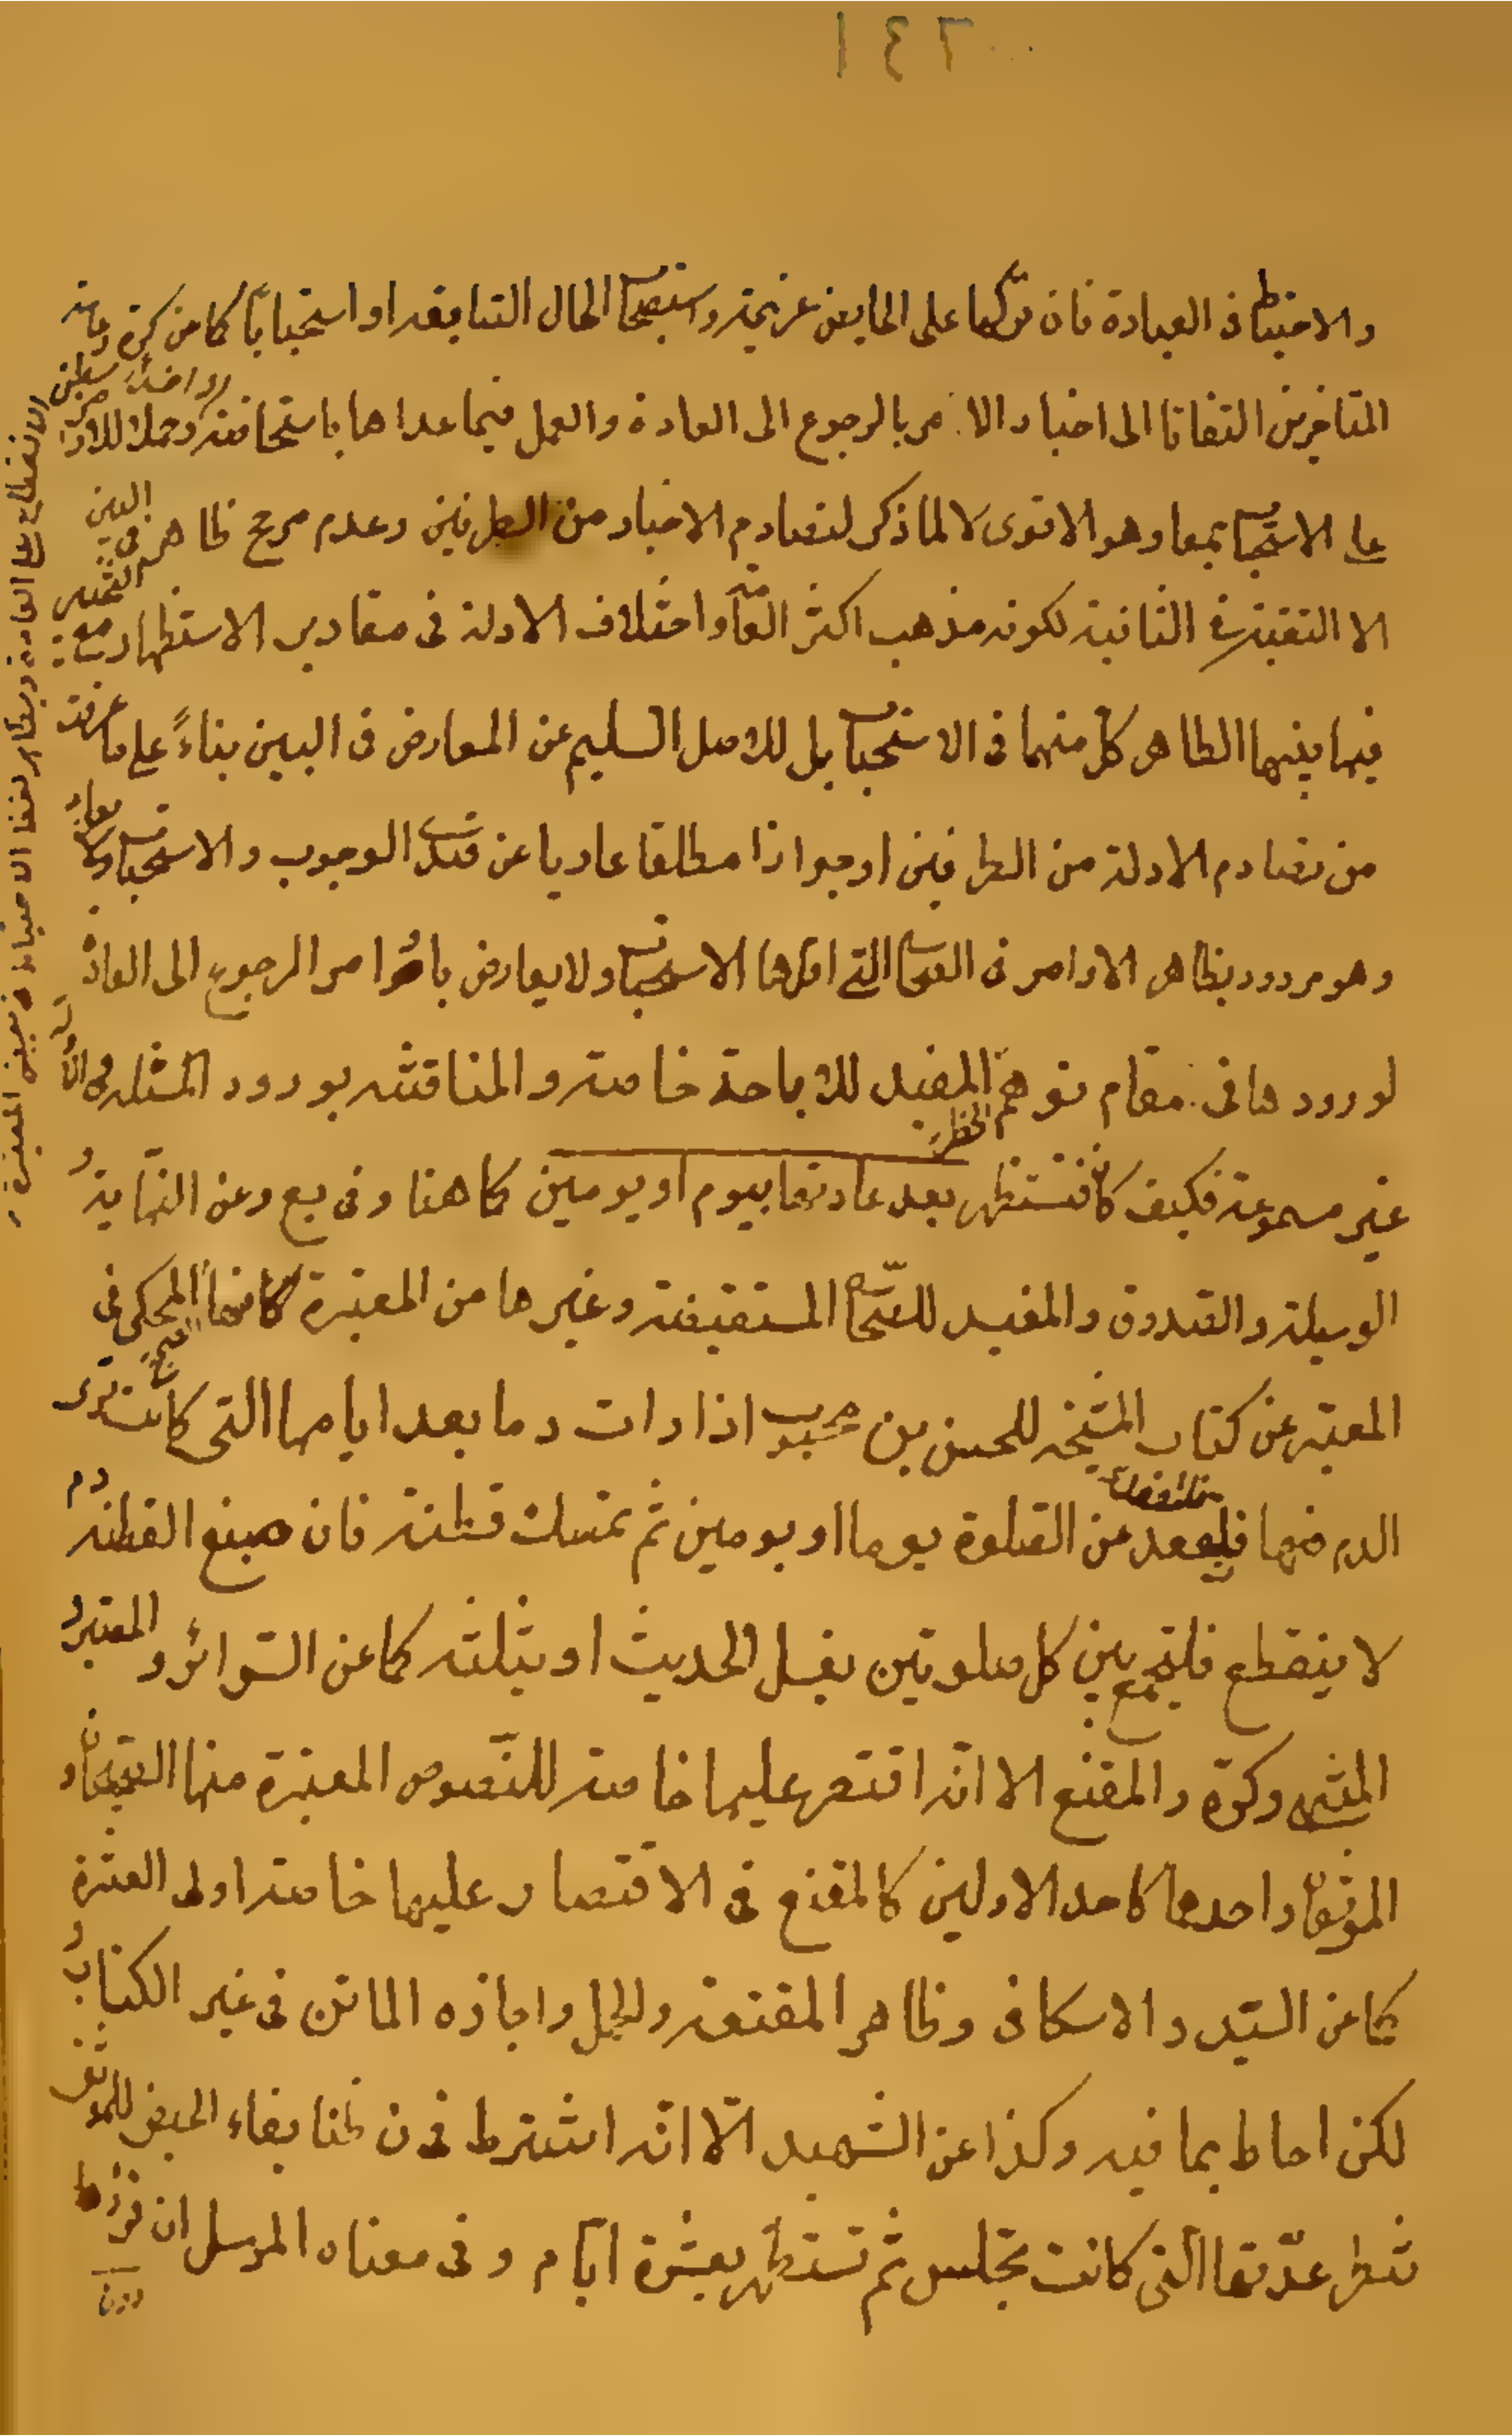 والاحتياط في العبادة فان تركها على الحايض عزيمة واستصحاب الحال السابقه او استحبابا كما عن كرة وعامة
المتاخرين التفاتا الى اخبار الامر بالرجوع الى العادة والعمل فيما عداها باستحاضة وحملا للاوامر
على الاستحباب جمعا وهو الاقوى لا لما ذكر لتصادم الاخبار من الطرفين وعدم مرجح ظاهر في البين
الا التقية في الثانية لكونه مذهب اكثر العامة واختلاف الادلة في مقادير الاستظهار مع التخيير
فيما بينها الظاهر كل منهما في الاستحباب بل للاصل السليم عن المعارض في البين بناءً على ما عرفت
من تصادم الادلة من الطرفين او جوازا مطلقا عاريا عن قيدي الوجوب والاستحباب
وهو مردود بظاهر الاوامر في الصحاح التي اقلها الاستحباب ولا يعارض باوامر الرجوع الى العادة
لورودها في مقام توهم الحظر المفيد للاباحة خاصة والمناقشة بورود المثل في
غير مسموعة فكيف كان فتستظهر بعد عادتها بيوم او يومين كما هنا وفي يع وعن النهاية و
الوسيلة والصدوق والمفيد للصحاح المستفيضة وغيرها من المعتبرة كالصحيح المحكي في
المعتبر عن كتاب المشيخة للحسن بن محبوب اذا رات دما بعد ايامها التي كانت ترى
الدم فيها فلتقعد عن الصلوة يوما او يومين ثم تمسك قطنة فان صبغ القطنة دم
لا ينقطع فلتجمع بين كل صلوتين بغسل الحديث او بثلثه كما عن السرائر و المعتبر و
المنتهى وكرة والمقنع الا انه اقتصر عليها خاصة للنصوص المعتبرة منها الصحيحان و
الموثقان واحدها كاحد الاولين كالمقنع في الاقتصار عليها خاصة او الى العشرة
كما عن السيد والاسكافي وظاهر المقنعة والجمل واجازه الماتن في غير الكتاب و
لكن احاط بما فيه وكذا عن الشهيد الا انه اشترط في ن ظنا بقاء الحيض للموثق
تنظر عدتها التي كانت تجلس ثم تستظهر بعشرة ايام وفي معناه المرسل ان قرؤها
دون